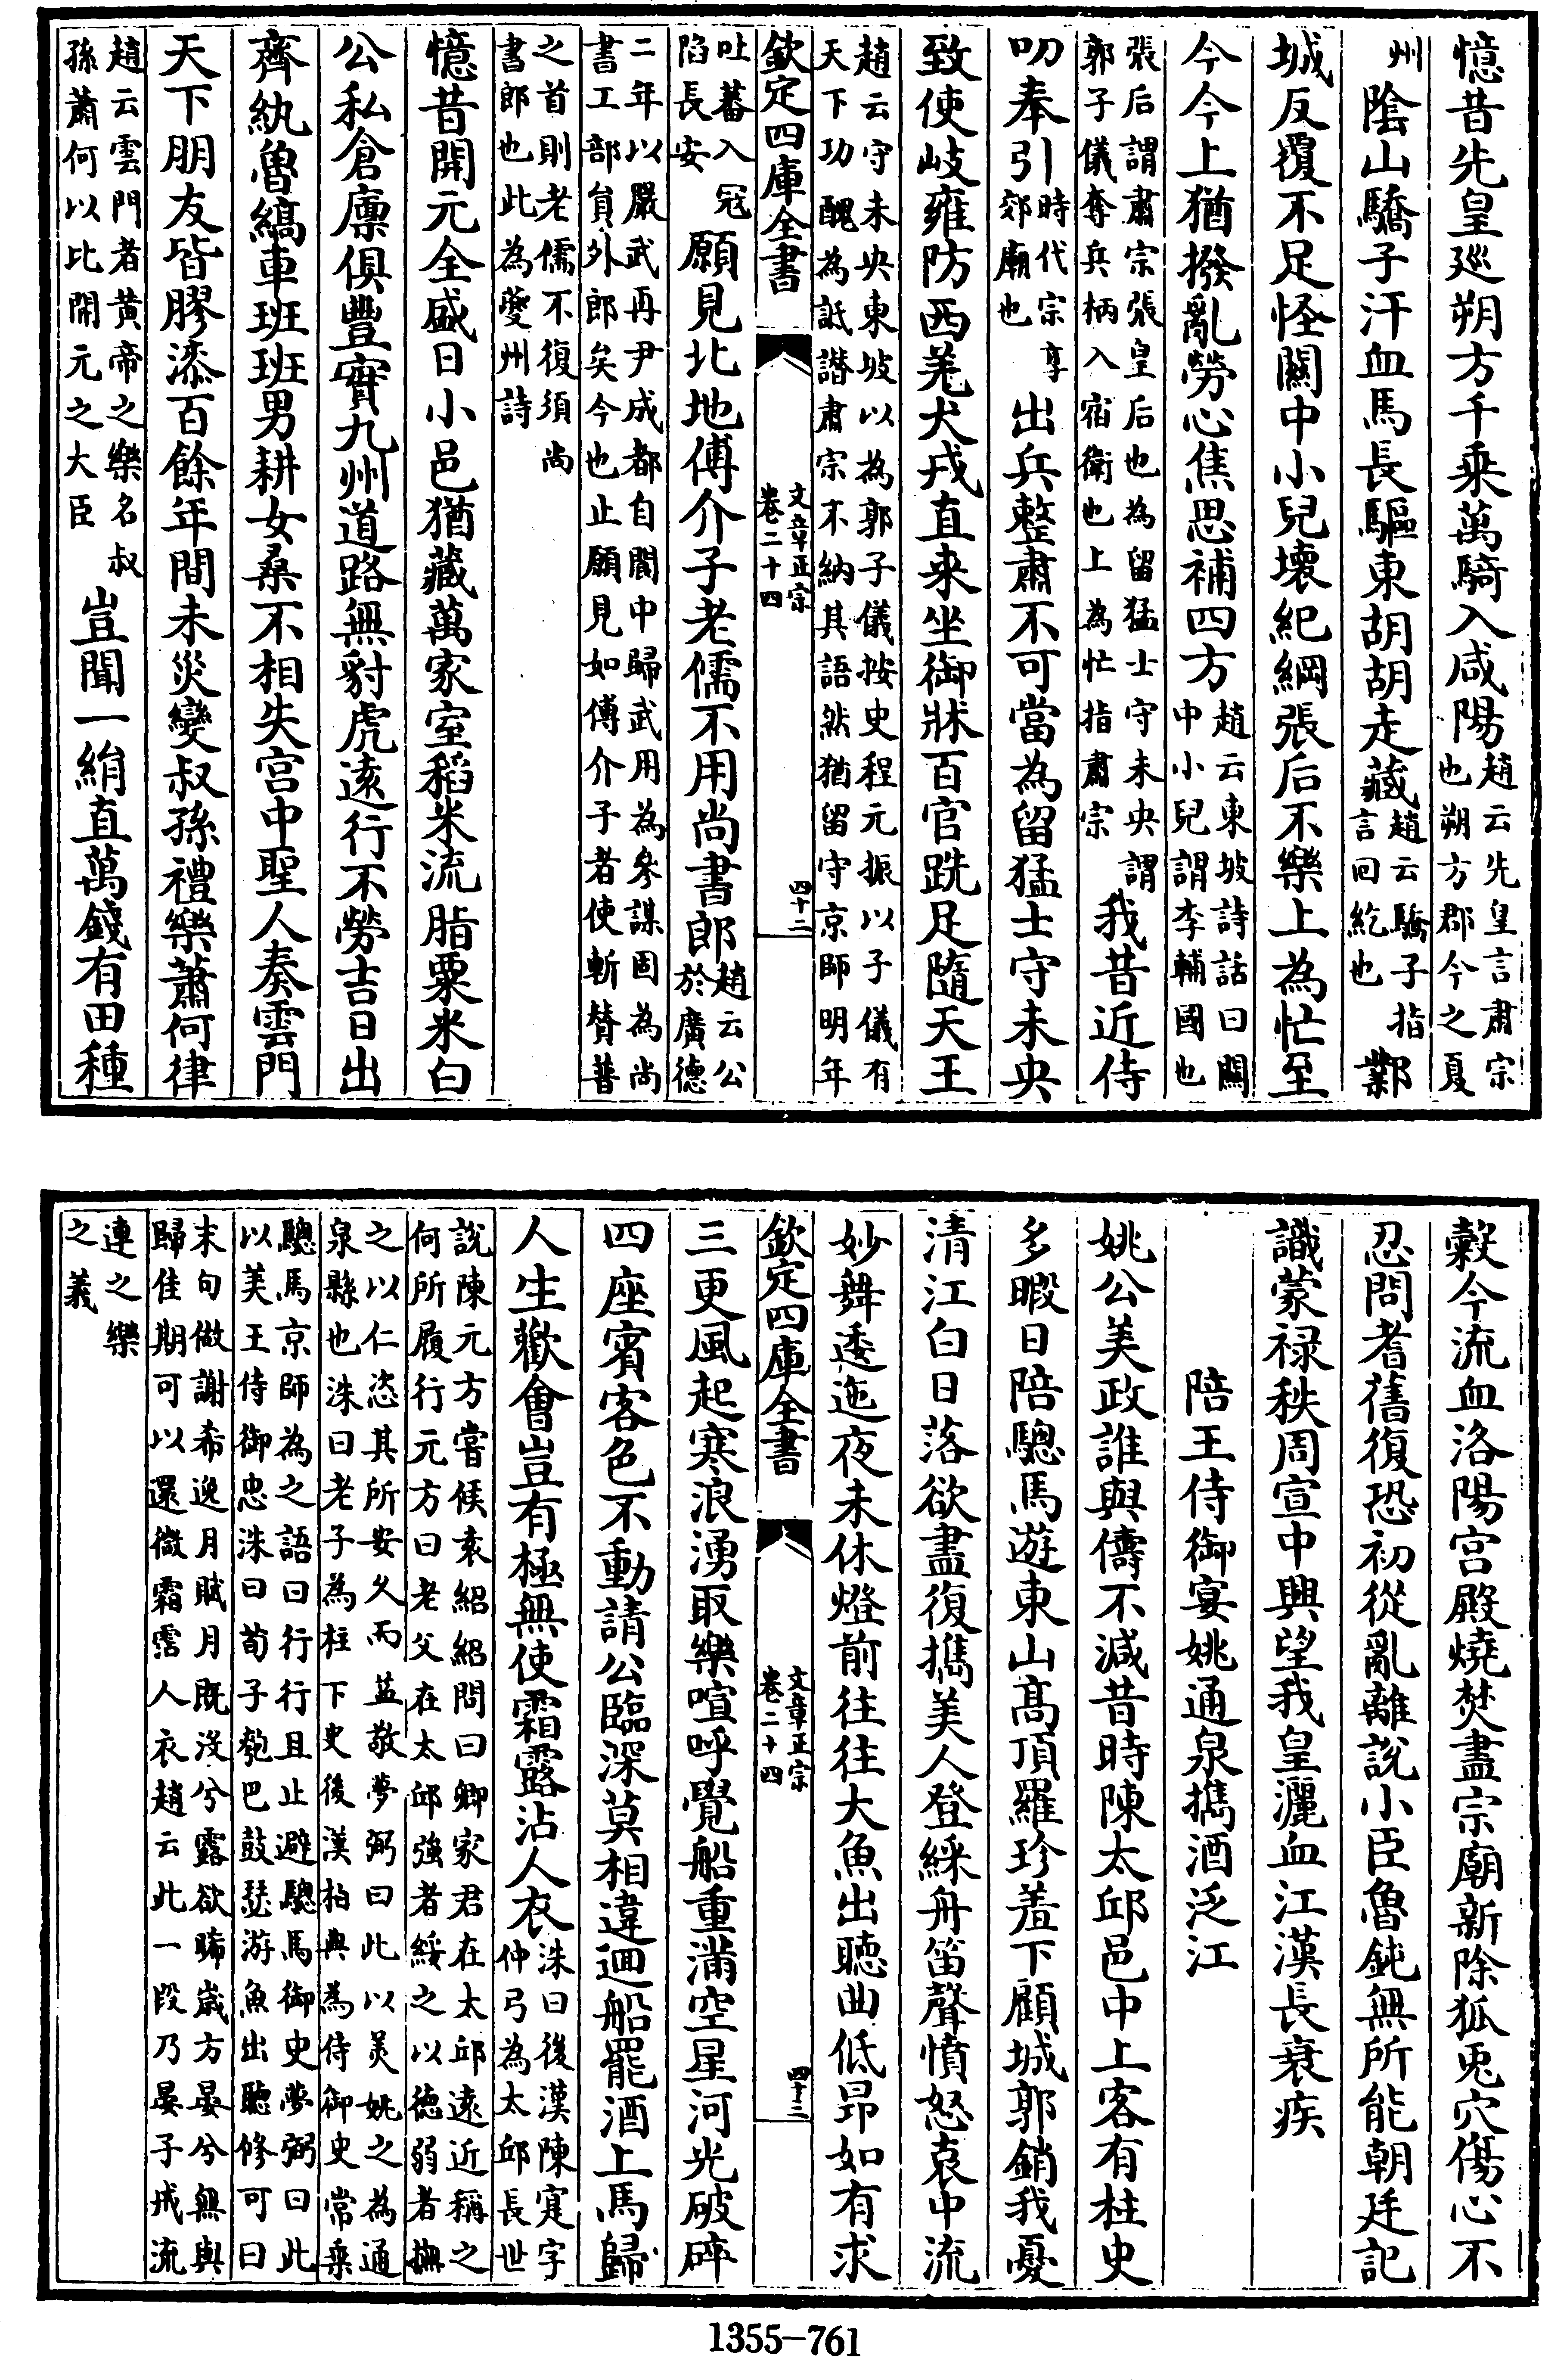 憶昔先皇廵朔方千乘萬騎入咸陽趙云先皇言肅宗也朔方郡今之夏
州隂山驕子汗血馬長驅東胡胡走藏趙云驕子指言回紇也鄴
城反覆不足怪關中小兒壞紀綱張后不樂上為忙至
今今上猶撥亂勞心焦思補四方趙云東坡詩話曰關中小兒謂李輔國也
張后謂肅宗張皇后也為留猛士守未央謂郭子儀奪兵柄入宿衛也上為忙指肅宗我昔近侍
叨奉引時代宗享郊廟也出兵整肅不可當為留猛士守未央
致使岐雍防西羌犬戎直來坐御牀百官跣足隨天王
趙云守未央東坡以為郭子儀按史程元振以子儀有天下功醜為詆譖肅宗不納其語然猶留守京師明年
欽定四庫全書
文章正宗
卷二十四
四十二
吐蕃入冦陷長安願見北地傅介子老儒不用尚書郎趙云公於廣德
二年以嚴武再尹成都自閬中歸武用為參謀固為尚書工部員外郎矣今也止願見如傅介子者使斬賛普
之首則老儒不復須尚書郎也此為夔州詩
憶昔開元全盛日小邑猶藏萬家室稻米流脂粟米白
公私倉廩俱豐實九州道路無豺虎逺行不勞吉日出
齊紈魯縞車班班男耕女桑不相失宫中聖人奏雲門
天下朋友皆膠漆百餘年間未災變叔孫禮樂蕭何律
趙云雲門者黄帝之樂名叔孫蕭何以比開元之大臣豈聞一絹直萬錢有田種
榖今流血洛陽宫殿燒焚盡宗廟新除狐兎穴傷心不
忍問耆舊復恐初從亂離說小臣魯鈍無所能朝廷記
識蒙禄秩周宣中興望我皇灑血江漢長衰疾
陪王侍御宴姚通泉擕酒泛江
姚公美政誰與儔不減昔時陳太邱邑中上客有柱史
多暇日陪驄馬遊東山髙頂羅珍羞下顧城郭銷我憂
清江白日落欲盡復擕美人登綵舟笛聲憤怒哀中流
妙舞逶迤夜未休燈前往往大魚出聴曲低昂如有求
欽定四庫全書
文章正宗
卷二十四
四十三
三更風起寒浪湧取樂喧呼覺船重滿空星河光破碎
四座賓客色不動請公臨深莫相違迴船罷酒上馬歸
人生歡㑹豈有極無使霜露沾人衣洙曰後漢陳寔字仲弓為太邱長世
說陳元方嘗候袁紹紹問曰卿家君在太邱逺近稱之何所履行元方曰老父在太邱強者綏之以徳弱者撫
之以仁恣其所安乆而益敬夢弼曰此以美姚之為通泉縣也洙曰老子為柱下史後漢栢典為侍御史常乗
驄馬京師為之語曰行行且止避驄馬御史夢弼曰此以美王侍御忠洙曰荀子匏巴鼓瑟游魚出聽修可曰
末句倣謝希逸月賦月既没兮露欲晞嵗方晏兮無與歸佳期可以還微霜霑人衣趙云此一段乃晏子戒流
連之樂之義
1355-761